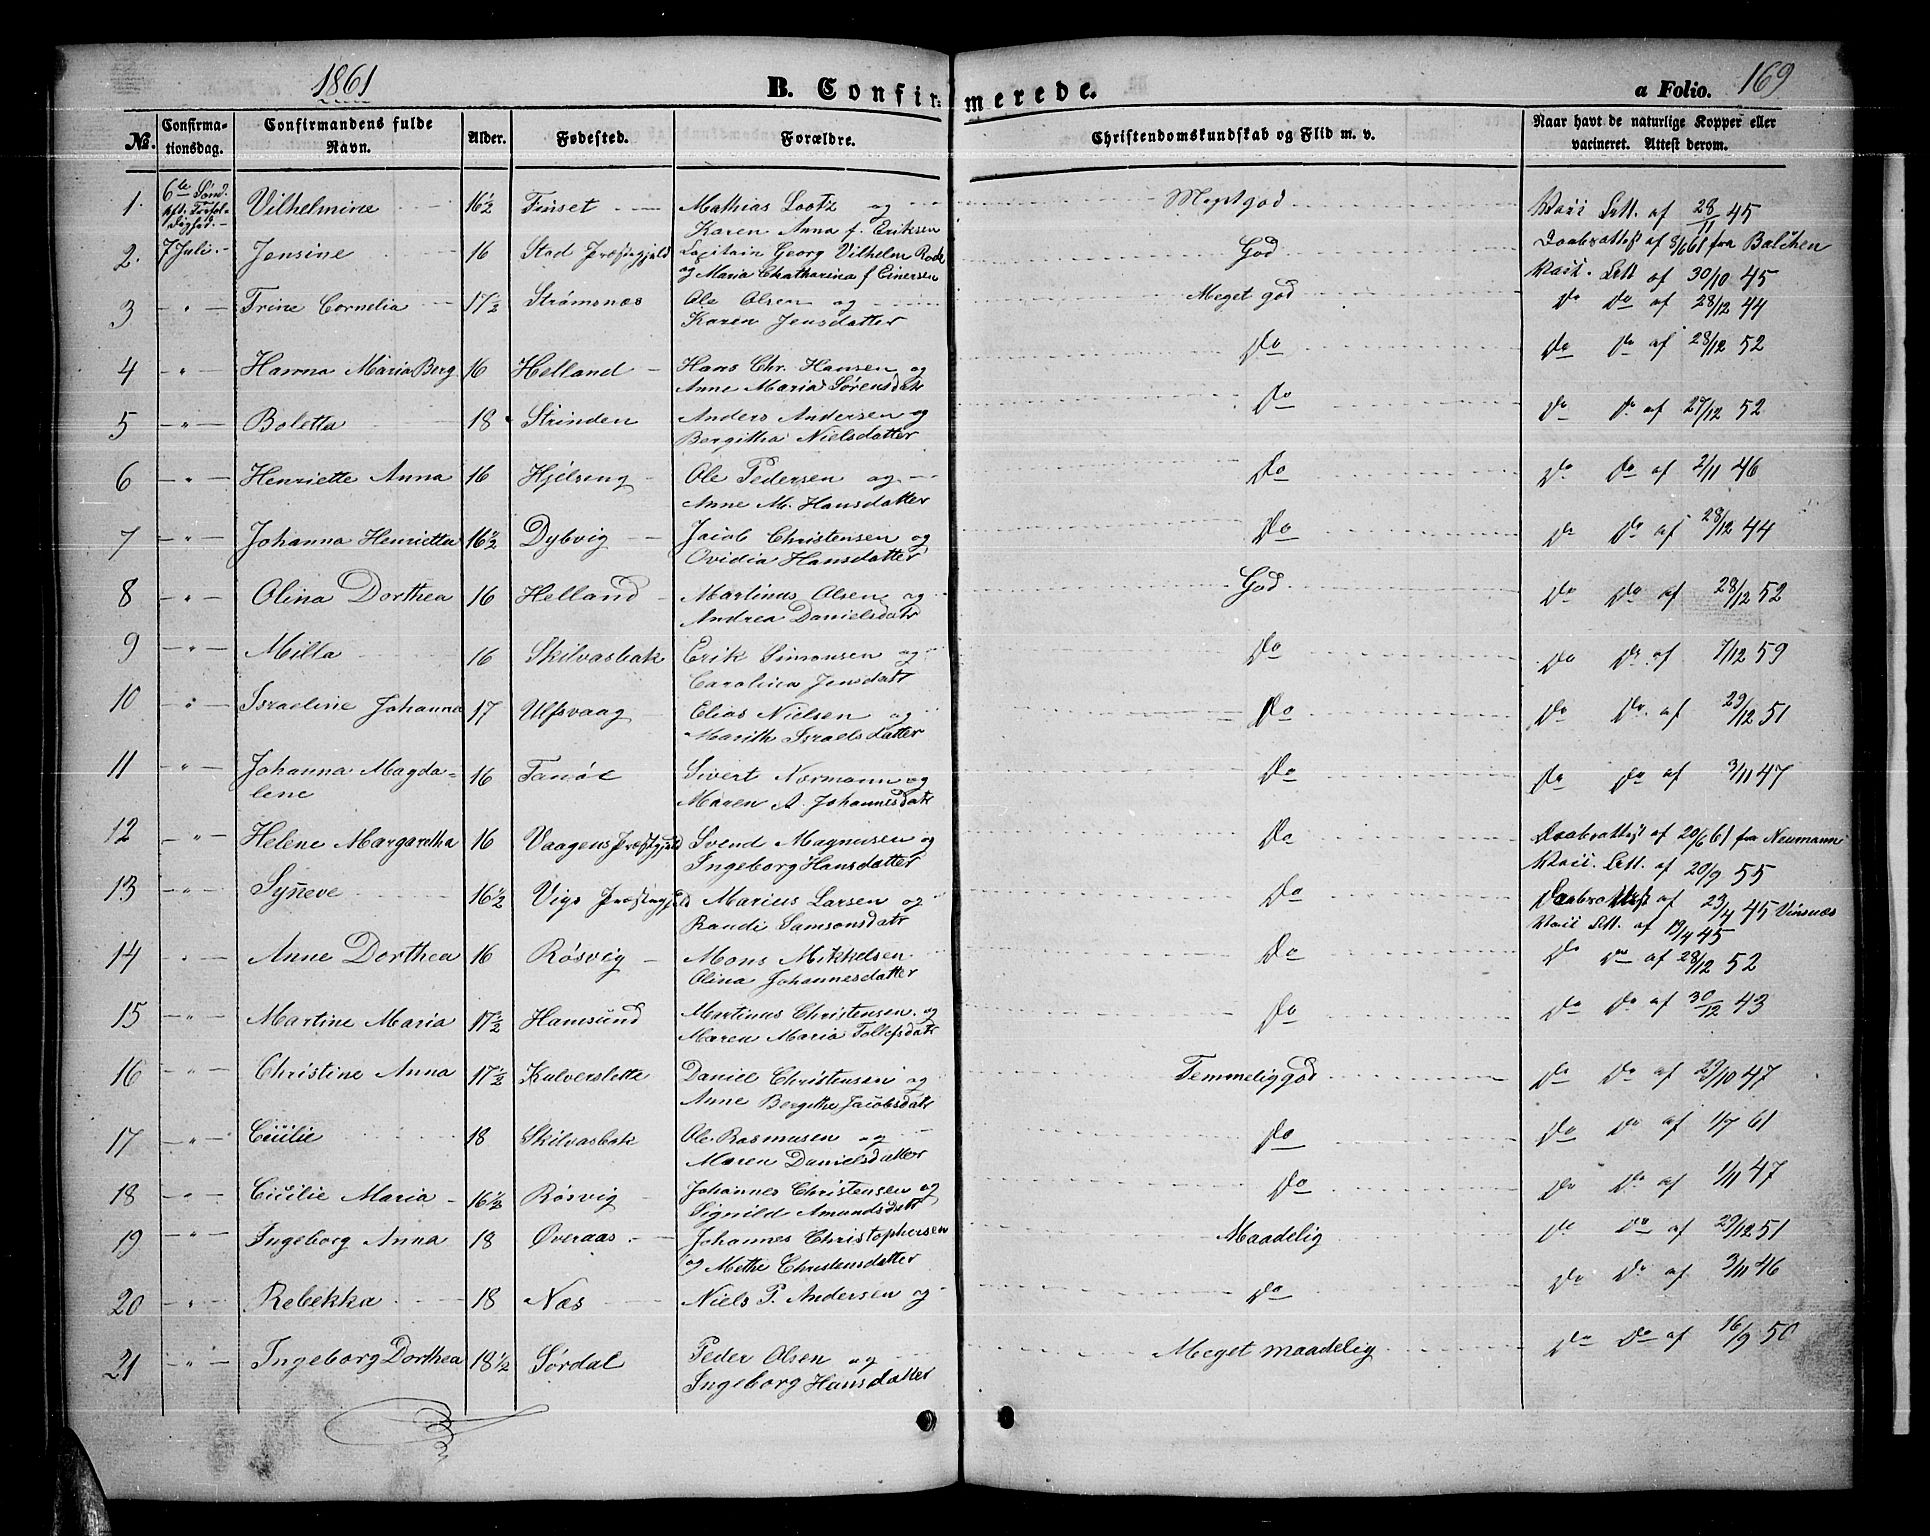 1861
B. Confirmerede.
a Folio. 169
No. Confirmationsdag. Confirmandens fulde Navn. Alder. Fødested. Forældre. Christendomskundskab og Flid m. v. Naar havt de naturlige Kopper eller vacineret. Attest derom.
1. 6te Sønd. eft. Trefoldighed. Vilhelmine 16½ Finset Mathias Lootz og Karen Anna f. Eriksen Meget god Vaxi Sett. af 28/11 45
2. 7 Juli. Jensine 16 Stad Præstegjeld Capitain Georg Vilhelm Rode og Maria Chatharina f Einersen God Daabsattest af 8/6 61 fra Balchen Vaxi. Sett af 30/10 45
3 " Trine Cornelia 17½ Strømsnæs Ole Olsen og Karen Jensdatter Meget god Do Do af 28/12 44
4 " Hanna Maria Berg 16 Helland Hans Chr. Hansen og Anne Maria Sørensdatr Do Do Do af 28/12 52
5 " Boletta 18 Strinden Anders Andersen og Bergitha Nielsdatter Do Do Do af 27/12 52
6 " Henriette Anna 16 Hjelseng Ole Pedersen og Anne M. Hansdatter Do Do Do af 2/11 46
7 " Johanna Henrietta 16½ Dybvig Jacob Christensen og Ovidia Hansdatter Do Do Do af 28/12 44
8 " Olina Dorthea 16 Helland Martinus Olsen og Andrea Danielsdatr God Do Do af 28/12 52
9 " Milla 16 Skilvasbak Erik Simonsen og Carolina Jensdatr Do Do Do af 7/12 59
10 " Israeline Johanna 17 Ulfsvaag Elias Nielsen og Marith Israelsdatter Do Do Do af 29/12 51
11 " Johanna Magdalene 16 Tanøe Sivert Normann og Maren A. Johannesdatr Do Do Do af 3/11 47
12 " Helene Margaretha 16 Vaagens Præstegjeld Svend Magnusen og Ingeborg Hansdatter Do Daabsattest af 20/6 61 fra Neumann Vaxi. Sett. af 20/9 55
13 " Synneve 16½ Vigs Præstegjeld Marius Larsen og Randi Samsonsdatr Do Daabsattest af 23/4 45 Vinsnæs Vaxi Sett. af 19/4 45
14 " Anne Dorthea 16 Røsvig Mons Mikkelsen Olina Johannesdatter Do Do Do af 28/12 52
15 " Martine Maria 17½ Hamsund Martinus Christensen og Maren Maria Tollefsdatr Do Do Do af 30/12 43
16 " Christine Anna 17½ Kalverslette Daniel Christensen og Anne Bergithe Jacobsdatr Temmelig god Do Do af 29/10 47
17 " Cecilie 18 Skilvasbak Ole Rasmusen og Maren Danielsdatter Do Do Do af 1/7 61
18 " Cicilie Maria 16½ Røsvig Johannes Christensen og Signild Amundsdatr Do Do Do af 1/11 47
19 " Ingeborg Anna 18 Øveraas Johannes Christophersen og Methe Christensdatter Maadelig Do Do af 29/12 51
20 " Rebekka 18 Næs Niels P. Andersen og Do Do Do af 3/11 46
21 " Ingeborg Dorthea 18½ Sørdal Peder Olsen og Ingeborg Hansdatter Meget maadelig Do Do af 16/9 50